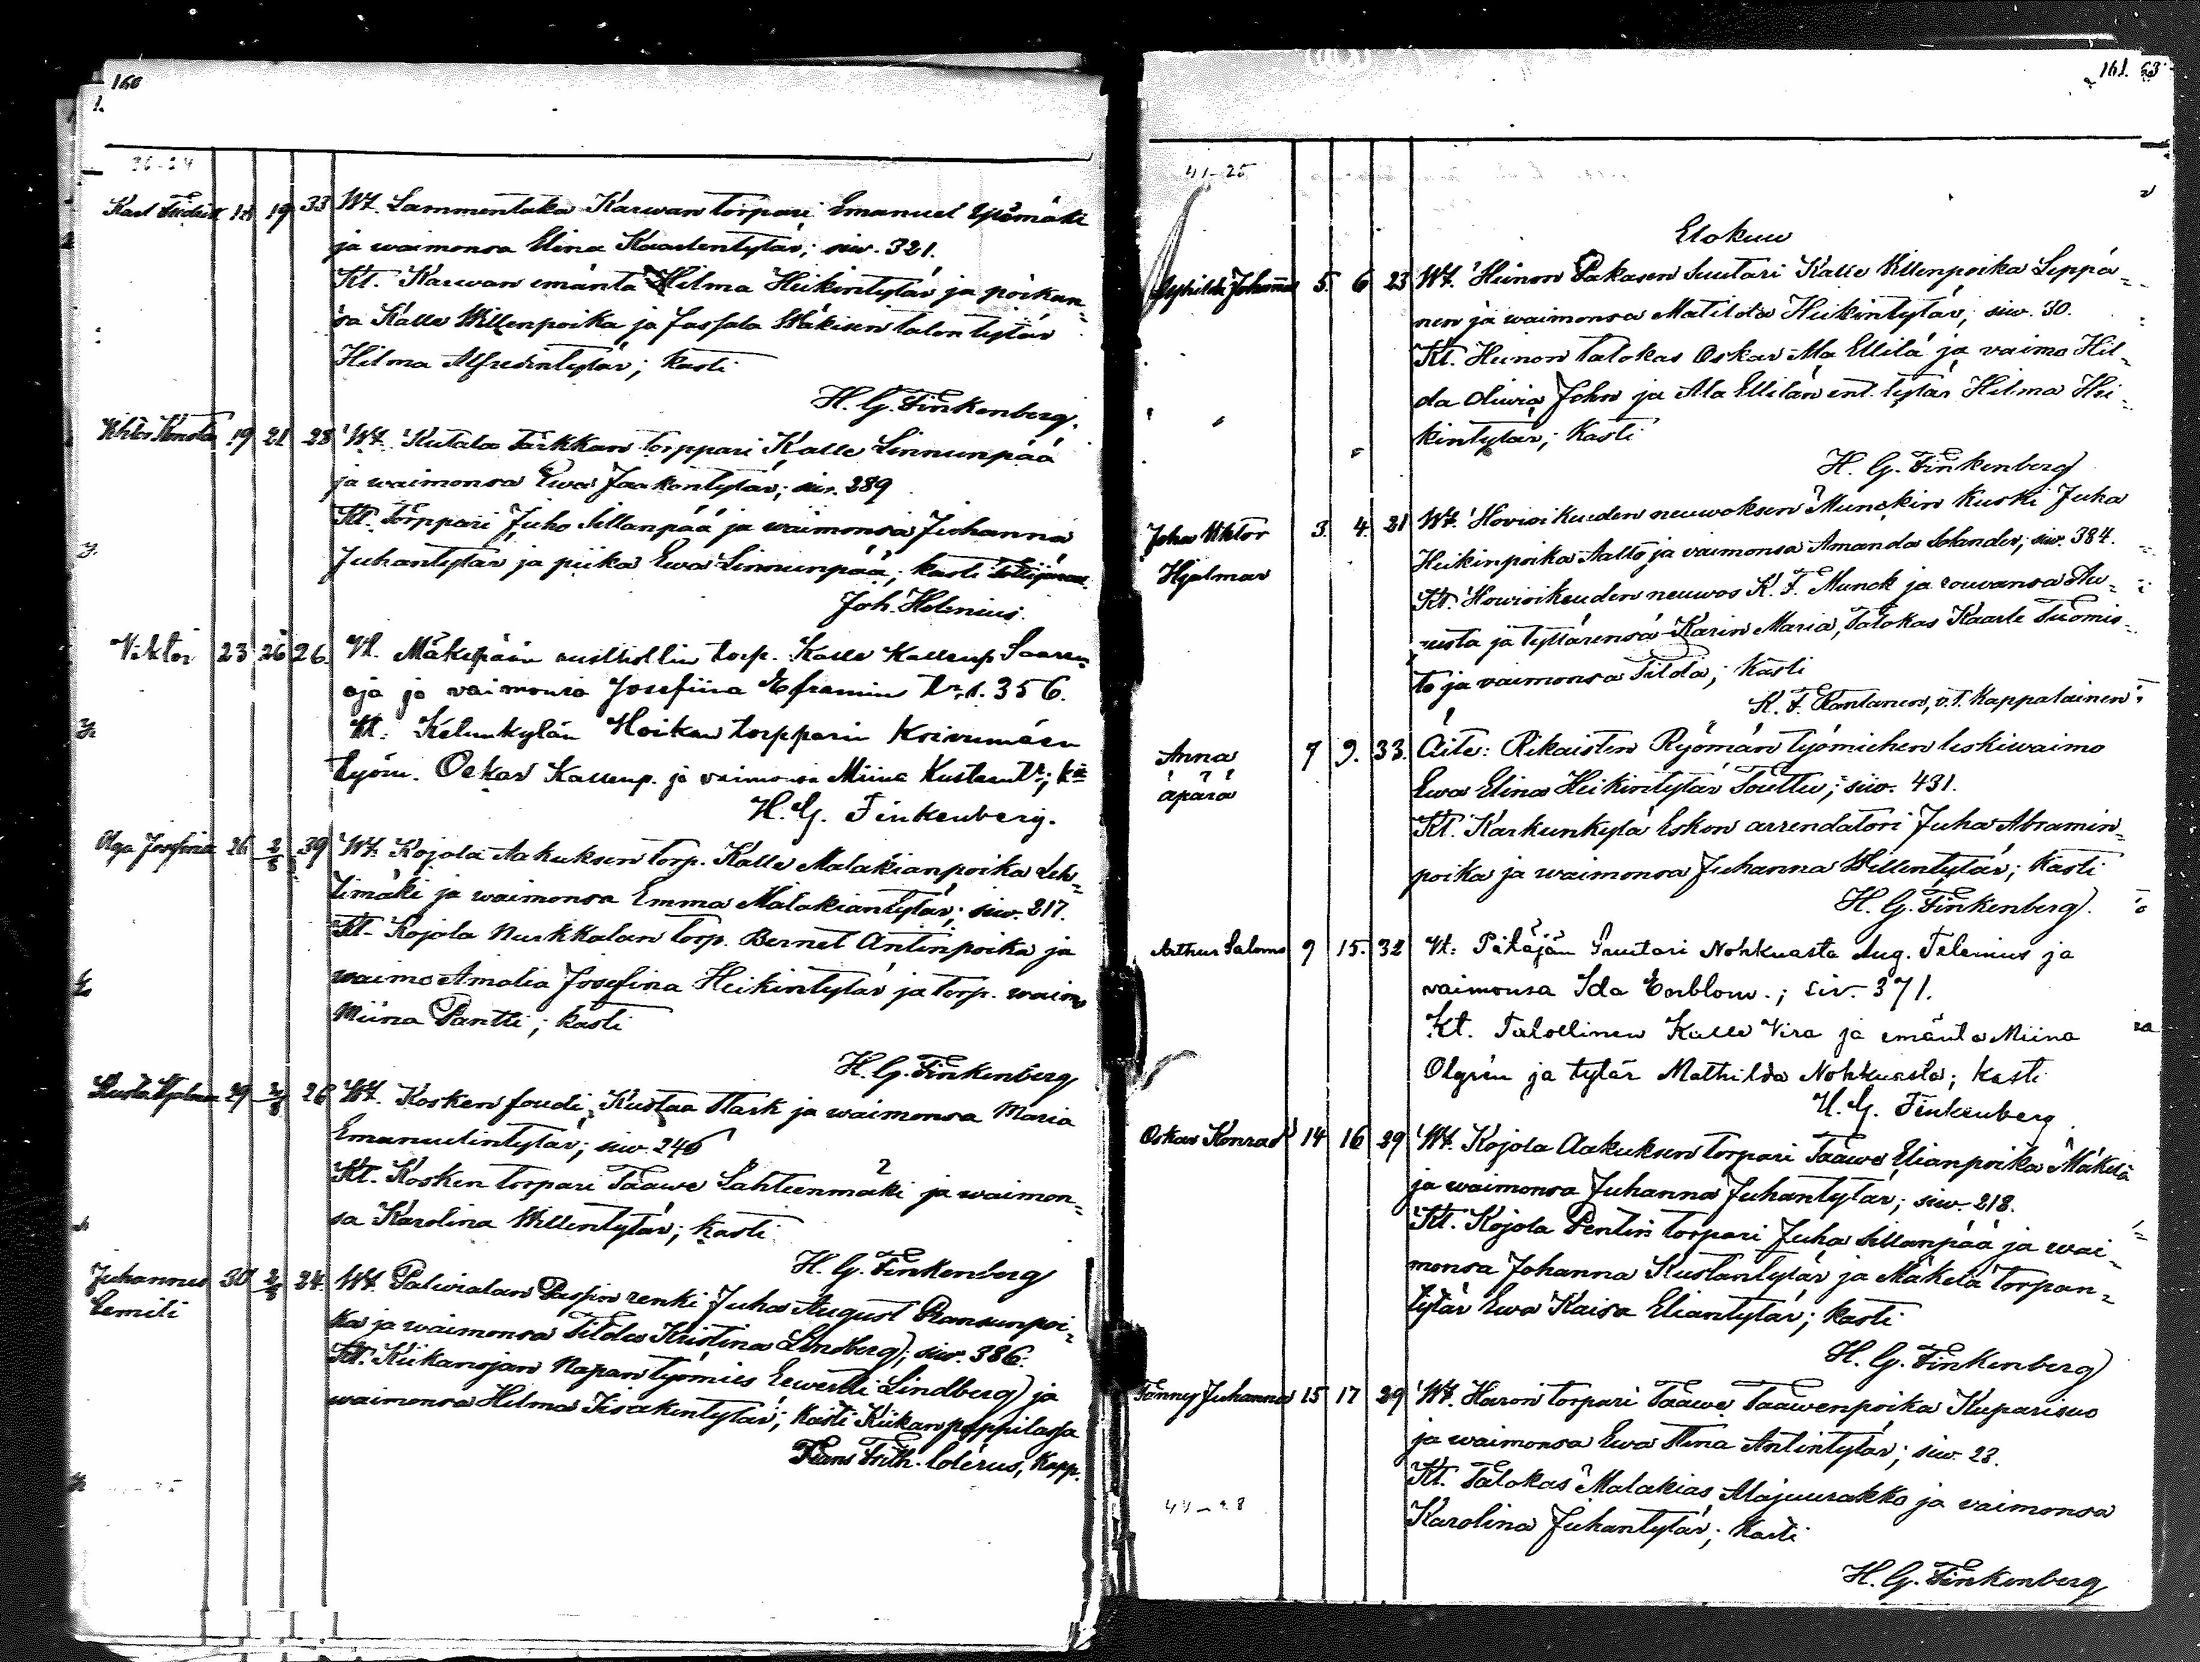 160
36-24
Karl Fredrik 18 19 33 Wt. Sammentaka Karwan torpari Emanuel Yjömäki
ja waimonsa Elina Kaarlentytär; siw. 321.
Kt. Karwan emäntä Hilma Heikintytär ja poikan-
sa Kalle Willenpoika ja Jassala Wäkisen talon tytär
Hilma Alfredintytär; kasti
H. G. Finkenberg.
Wihtor Konsta 19 21 28 Wt. Kutala Tärkkan torppari Kalle Linnunpää
ja waimonsa Ewa Jaakontytär; siw. 289
Kt. torppari Juho Sillanpää ja waimonsa Juhanna
Juhantytär ja piika Ewa Linnunpää; kasti
Joh. Helenius.
Viktor 23 26 26. Vt. Mäkipään rusthollin torp. Kalle Kallenp. Saaren-
oja ja vaimonsa Josefiina Eframin tr. s. 356.
Kt. Kelunkylän Hoikan torpparin Koivumäen
työm. Oskar Kallenp. ja vaimonsa Miina Kustaantr.; k:ti
H. G. Finkenberg.
Olga Josefina 26 2/8 39 Wt. Kojola Aakuksen torp. Kalle Malakianpoika Leh-
timäki ja waimonsa Emma Malakiantytär; siw. 217.
Kt. Kojola Nurkkalan torp. Bernet Antinpoika ja
waimo Amalia Josefina Heikintytär ja torp. waimo
Miina Pantti; kasti
H. G. Finkenberg
Kusta Hjalmar 29 2/8 26 Wt. Kosken foudi Kustaa Stark ja waimonsa Maria
Emanuelintytär; siw. 246
Kt. Kosken torpari Taawe Lähteenmäki ja waimon-
sa Karolina Willentytär; kasti
H. G. Finkenberg
Juhannes 30 2/8 24. Wt. Palwialan Paspin renki Juha August Ransunpoi-
Eemili
ka ja waimonsa Tilda Kristina Lindberg; siw. 386.
Kt. Kiikanojan Napan työmies Eewertti Lindberg ja
waimonsa Hilma Iisakintytär; kasti Kiikan pappilassa
Frans Frith. Colérus, Kapp.
161. 63
41-25
Elokuu
Lyhilda Johanna 5. 6 23 Wt. Heinon Pakasen Suutari Kalle Willenpoika Leppä-
nen ja waimonsa Matilda Heikintytär; siw. 30.
Kt. Heinon talokas Oskar Ala Ellilä ja vaimo Hil-
da Oliwia John ja Ala Ellilän ent. tytär Hilma Hei-
kintytär; kasti
H. G. Finkenberg
Joha Viktor 3. 4. 21 Wt. Howioikeuden neuwoksen Munckin kuski Juha
Hjalmar
Heikinpoika Aalto ja vaimonsa Amanda Solander; siw. 384.
Kt. Howioikeuden neuwos K. F. Munck ja rouwansa Au-
rusta ja tyttärensä Karin Maria, Talokas Kaarle Tuomis-
to ja vaimonsa Tilda; kasti
K. F. Rantanen, v.t. Kappalainen
Anna 7 9. 33. Äite: Rikaisten Ryömän työmiehen leskiwaimo
äpärä
Ewa Elina Heikintytär Touttu; siw. 431.
Kt. Karkunkylä Eskon arrendatori Juha Abramin-
poika ja waimonsa Juhanna Willentytär; kasti
H. G. Finkenberg.
Arthur Salomo 9 15. 32 Vt. Pitäjän Suutari Nohkuasta Aug. Telenius ja
vaimonsa Ida Enblom.; siv. 371.
Kt. Talollinen Kalle Vira ja emäntä Miina
Olgrén ja tytär Mathilda Nohkuasta; kasti
H. G. Finkenberg
Oskar Konrad 14 16 29 Wt. Kojola Aakuksen torpari Taawe Elianpoika Mäkelä
ja waimonsa Juhanna Juhantytär; siw. 218.
Kt. Kojola Pentin torpari Juha Sillanpää ja wai-
monsa Johanna Kustantytär ja Mäkelä torpan-
tytär Ewa Kaisa Eliantytär; kasti
H. G. Finkenberg
Fanny Juhanna 15 17 29 Wt. Haron torpari Taawe Taawenpoika Kuparisuo
ja waimonsa Ewa Stina Antintytär; siw. 23.
Kt. Talokas Malakias Alajuurakko ja vaimonsa
Karolina Juhantytär; kasti
H. G. Finkenberg
44-28